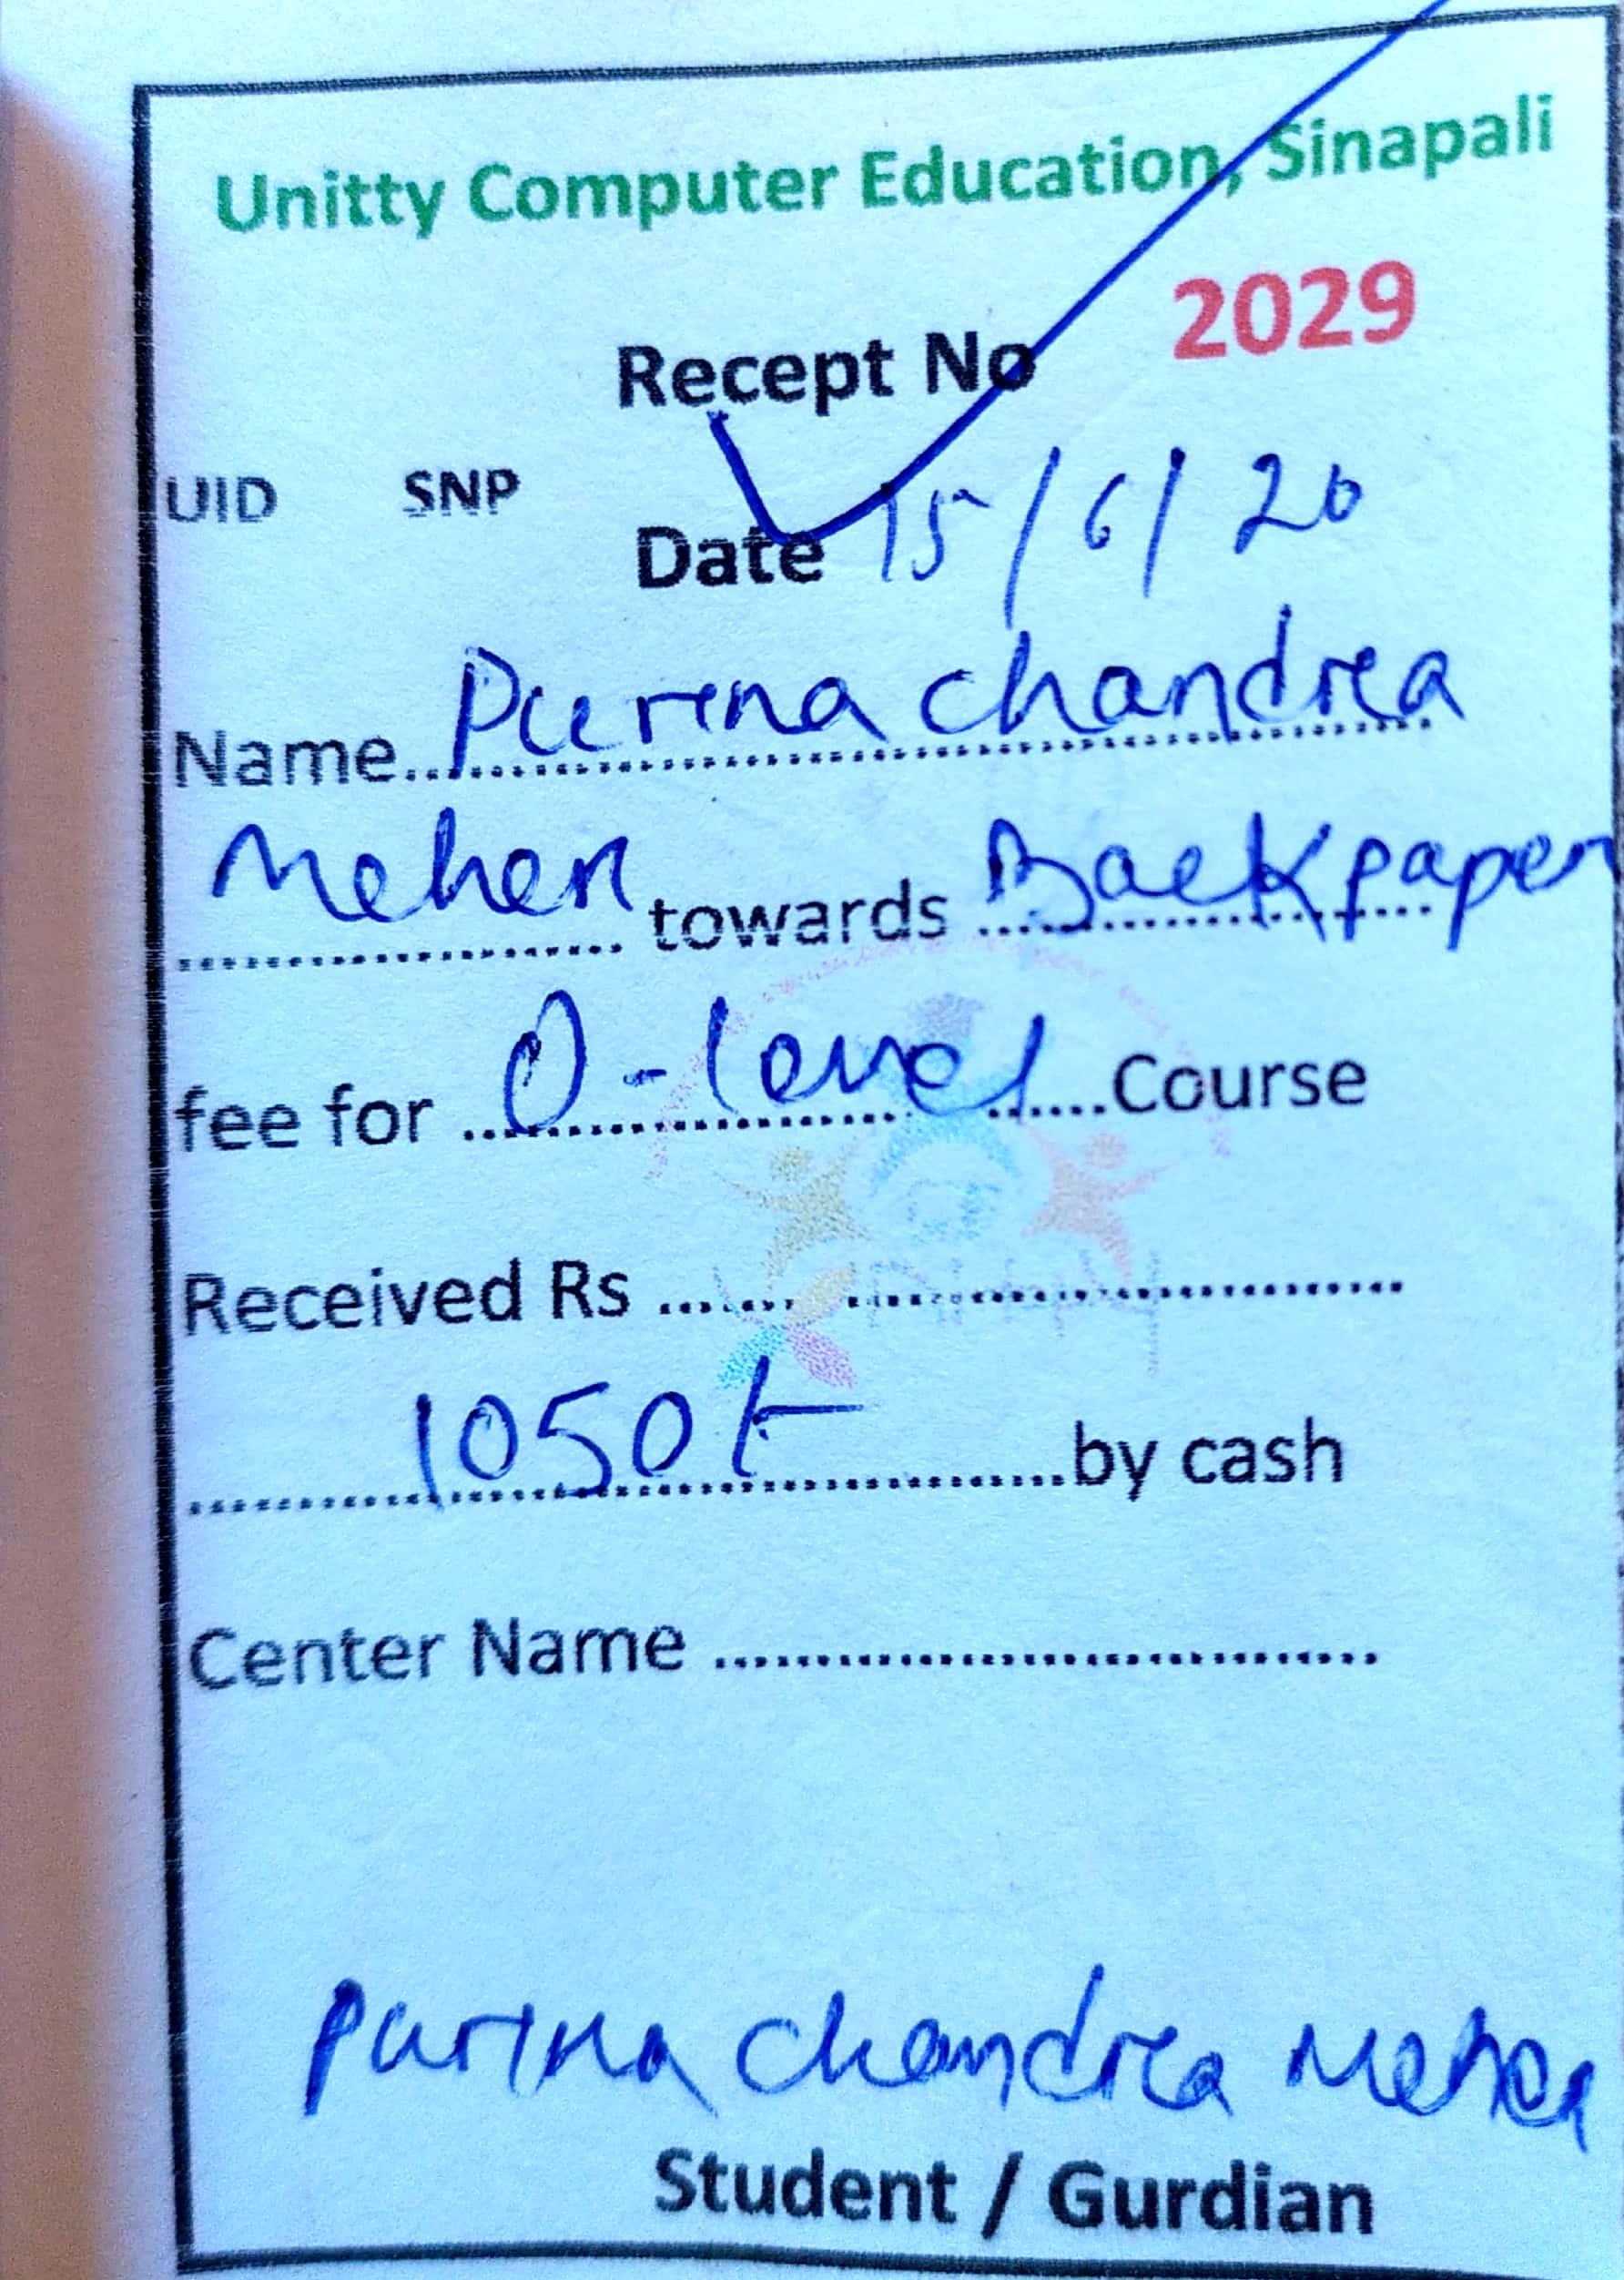 Unitty Computer Education, Sinapali
Recept No 2029
UID SNP
Date 15/6/20
Name.....Purna chandra
Meher towards Backpaper
fee for ...O-level......Course
Received Rs .......................
1050/- ..........by cash
Center Name ..............................
Purna Chandra Meher
Student / Gurdian